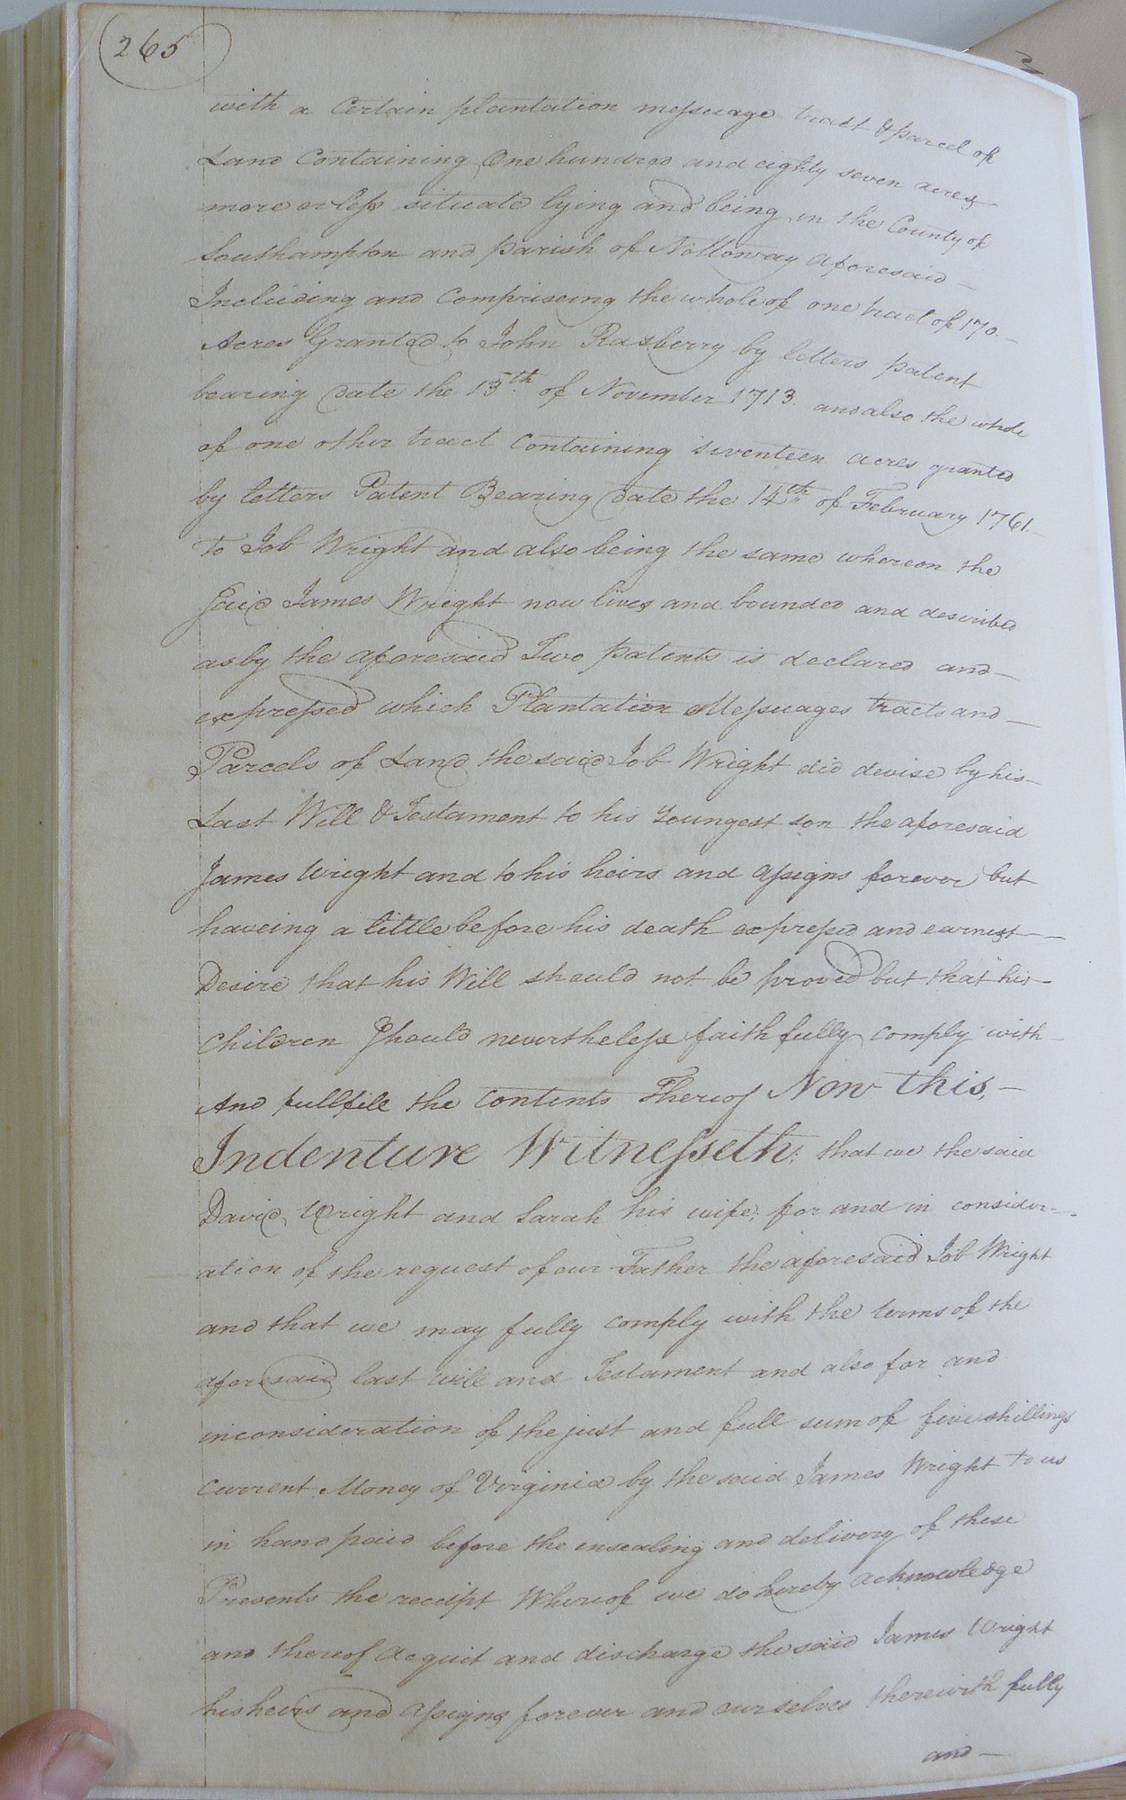 265
with a Certain plantation messuage tract & parcel of
Land Containing One hundred and eighty seven acres
more or less situate lying and being in the County of
Southampton and parish of Nottoway aforesaid
Including and Compriseing the whole of one tract of 170.
Acres Granted to John Rasberry by letters patent
bearing Date the 13th of November 1713. and also the whole
of one other tract Containing seventeen acres granted
by letters Patent Bearing Date the 14th of February 1761
To Job Wright and also being the same whereon the
Said James Wright now lives and bounded and described
as by the aforesaid Two patents is declared and
expressed which Plantation Messuages tracts and
Parcels of Land the said Job Wright did devise by his
Last Will & Testament to his youngest son the aforesaid
James Wright and to his heirs and assigns forever but
haveing a little before his death expresed and earnest
Desire that his Will should not be proved but that his
Children Should nevertheless faithfully comply with
And fullfill the Contents Thereof Now this,
Indenture Witnesseth: that we the said
David Wright and Sarah his wife, for and in consider-
ation of the request of our Father the aforesaid Job Wright
and that we may fully comply with the terms of the
aforesaid last will and Testament and also for and
in consideration of the just and full sum of five shillings
Current Money of Virginia by the said James Wright to us
in hand paid before the ensealing and delivery of these
Presents the receipt Whereof we do hereby acknowledge
and thereof Acquit and discharge the said James Wright
his heirs and assigns forever and ourselves therewith fully
and